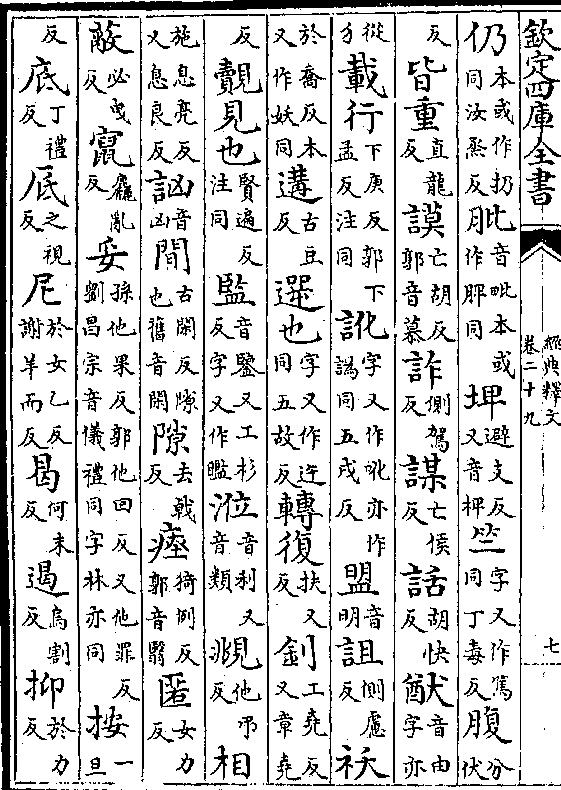 欽定四庫全書
經典釋文
卷二十九
七
仍本或作扔同汝烝反肶音毗本或作膍同埤避支反又音椑竺字又作篤同丁毒反腹分伏
反皆重直龍反謨亡胡反郭音慕詐側駕反謀亡侯反話胡快反猷音由字亦
從犭載行下庚反郭下孟反注同訛字又作吪亦作譌同五戈反盟音明詛側慮反祅
於喬反本又作妖同遘古豆反遻也字又作迕同五故反轉復扶又反釗工堯反又章堯
反覿見也賢遍反注同監音鑒又工杉反字又作涖音利又音類覜他弔反相
施息亮反又息良反訩音凶間古閑反隙也舊音閑隙去戟反瘞猗例反郭音翳匿女力
蔽必曳反竄麤亂反妥孫他果反郭他回反又他罪反劉昌宗音儀禮同字林亦同按一旦
反底丁禮反厎之視反尼於女乙反謝羊而反曷何末反遏烏割反抑於力反